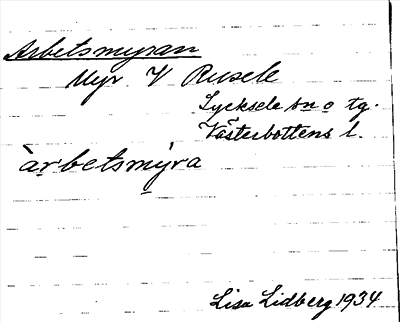 Arbetsmyran
Myr V Rusele
Lycksele sn o tg.
Västerbottens l.
àrbetsmỳra
Lisa Lidberg 1934